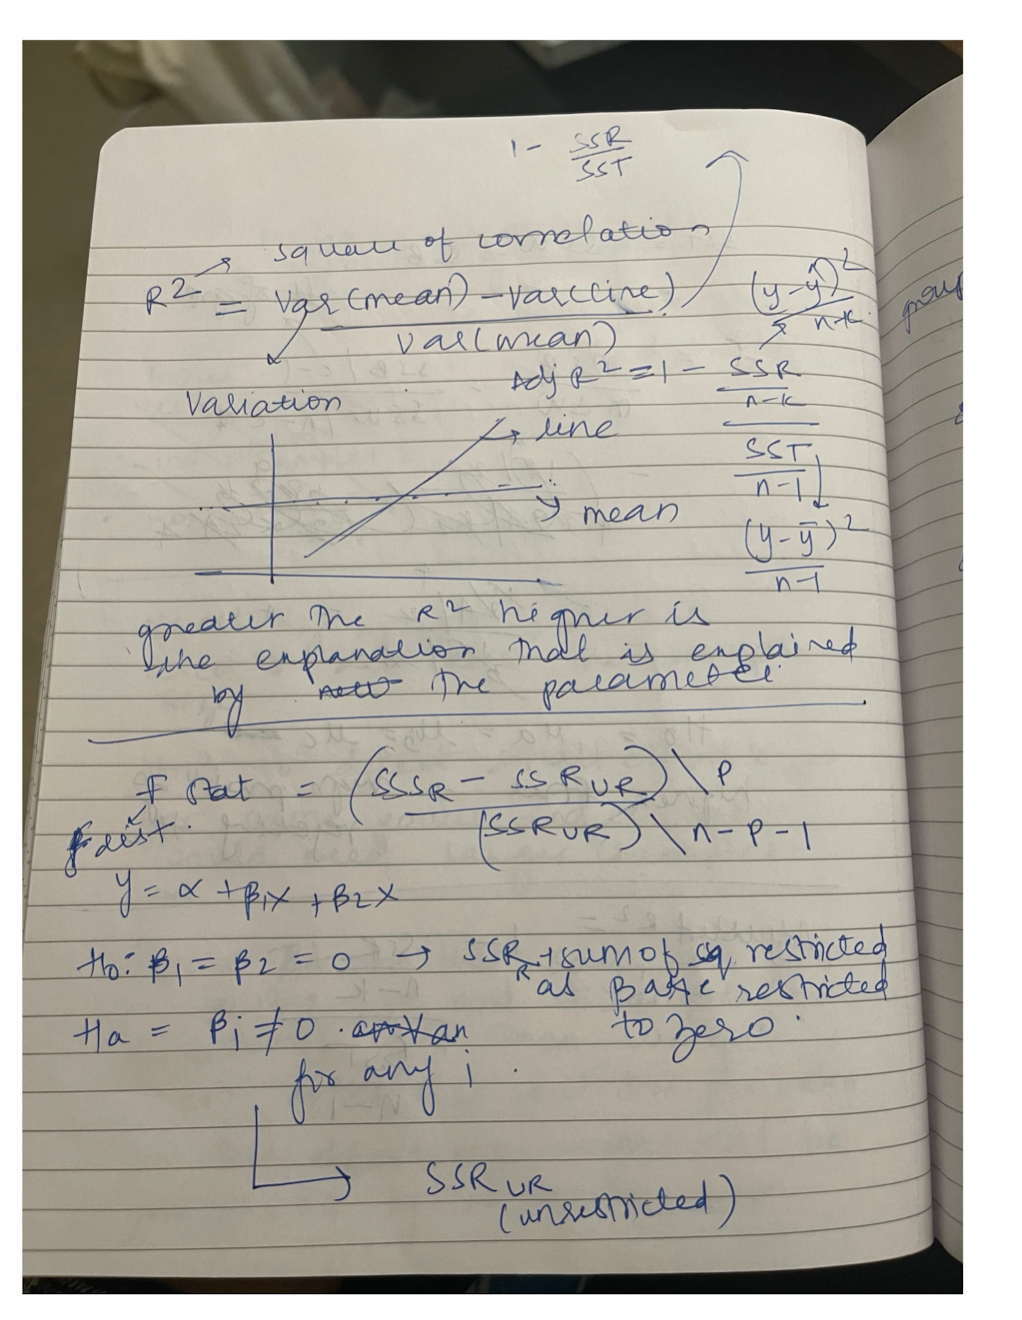 1 - SSR
SST
square of correlation
R² = Var(mean) - Var(line)
Var(mean)
(y-ŷ)²
n-k
Adj R² = 1 - SSR
n-k
SST
n-1
(y-ȳ)²
n-1
Variation
line
mean
greater the R² higher is
the explanation that is explained
by the parameter
F stat = (SSSR - SSRUR) \ P
(SSRUR) \ n-p-1
F dist.
y = α + β₁x + β₂x
H₀: β₁ = β₂ = 0 → SSR_R → sum of sq restricted
as β are restricted
to zero.
Ha = βi ≠ 0
for any i.
SSR UR
(unrestricted)
group